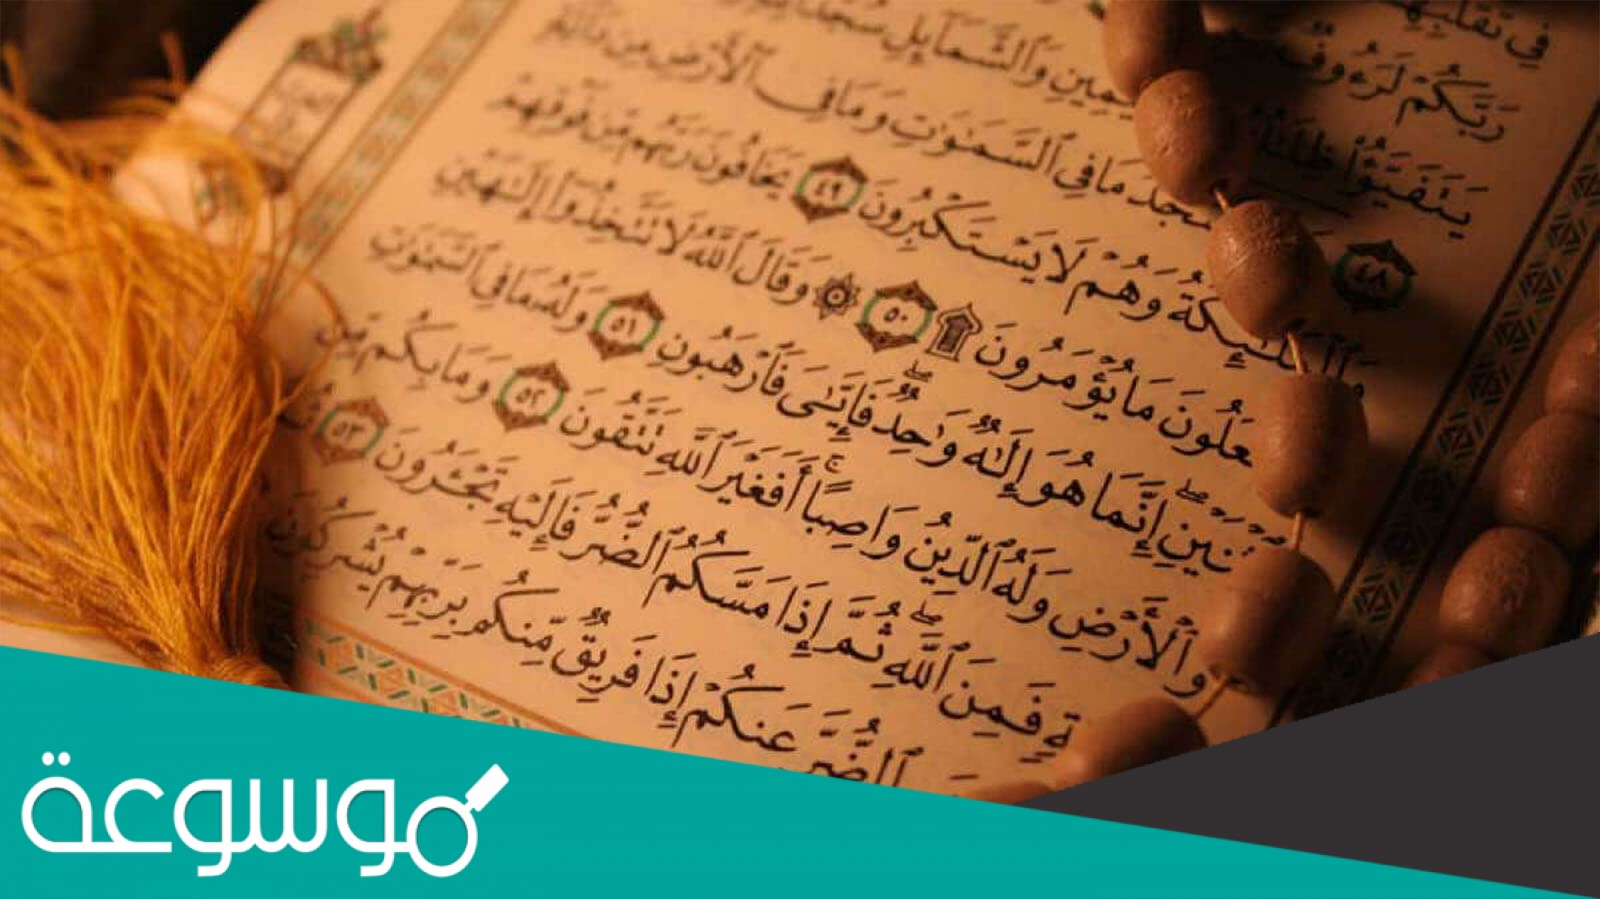 فِي تَقَلُّبِهِمْ
رَبَّكُمْ لَرَءُوفٌ
يَتَفَيَّؤُا۟ ظِلَٰلُهُ يَمِينِ وَٱلشَّمَآئِلِ سُجَّدًا
٤٨ سْجُدُ مَا فِي ٱلسَّمَٰوَٰتِ وَمَا فِي ٱلْأَرْضِ مِن دَآبَّةٍ
وَٱلْمَلَٰٓئِكَةُ وَهُمْ لَا يَسْتَكْبِرُونَ ٤٩ يَخَافُونَ رَبَّهُم مِّن فَوْقِهِمْ
عَلُونَ مَا يُؤْمَرُونَ ۩ ٥٠ ۞ وَقَالَ ٱللَّهُ لَا تَتَّخِذُوٓا۟ إِلَٰهَيْنِ
ثْنَيْنِۖ إِنَّمَا هُوَ إِلَٰهٌ وَٰحِدٌۖ فَإِيَّٰيَ فَٱرْهَبُونِ ٥١ وَلَهُۥ مَا فِي ٱلسَّمَٰوَٰتِ
وَٱلْأَرْضِ وَلَهُ ٱلدِّينُ وَاصِبًاۚ أَفَغَيْرَ ٱللَّهِ تَتَّقُونَ ٥٢ وَمَا بِكُم مِّن
ةٍ فَمِنَ ٱللَّهِۖ ثُمَّ إِذَا مَسَّكُمُ ٱلضُّرُّ فَإِلَيْهِ تَجْـَٔرُونَ ٥٣ ثُمَّ
ٱلضُّرَّ عَنكُمْ إِذَا فَرِيقٌ مِّنكُم بِرَبِّهِمْ يُشْرِكُونَ
موسوعة